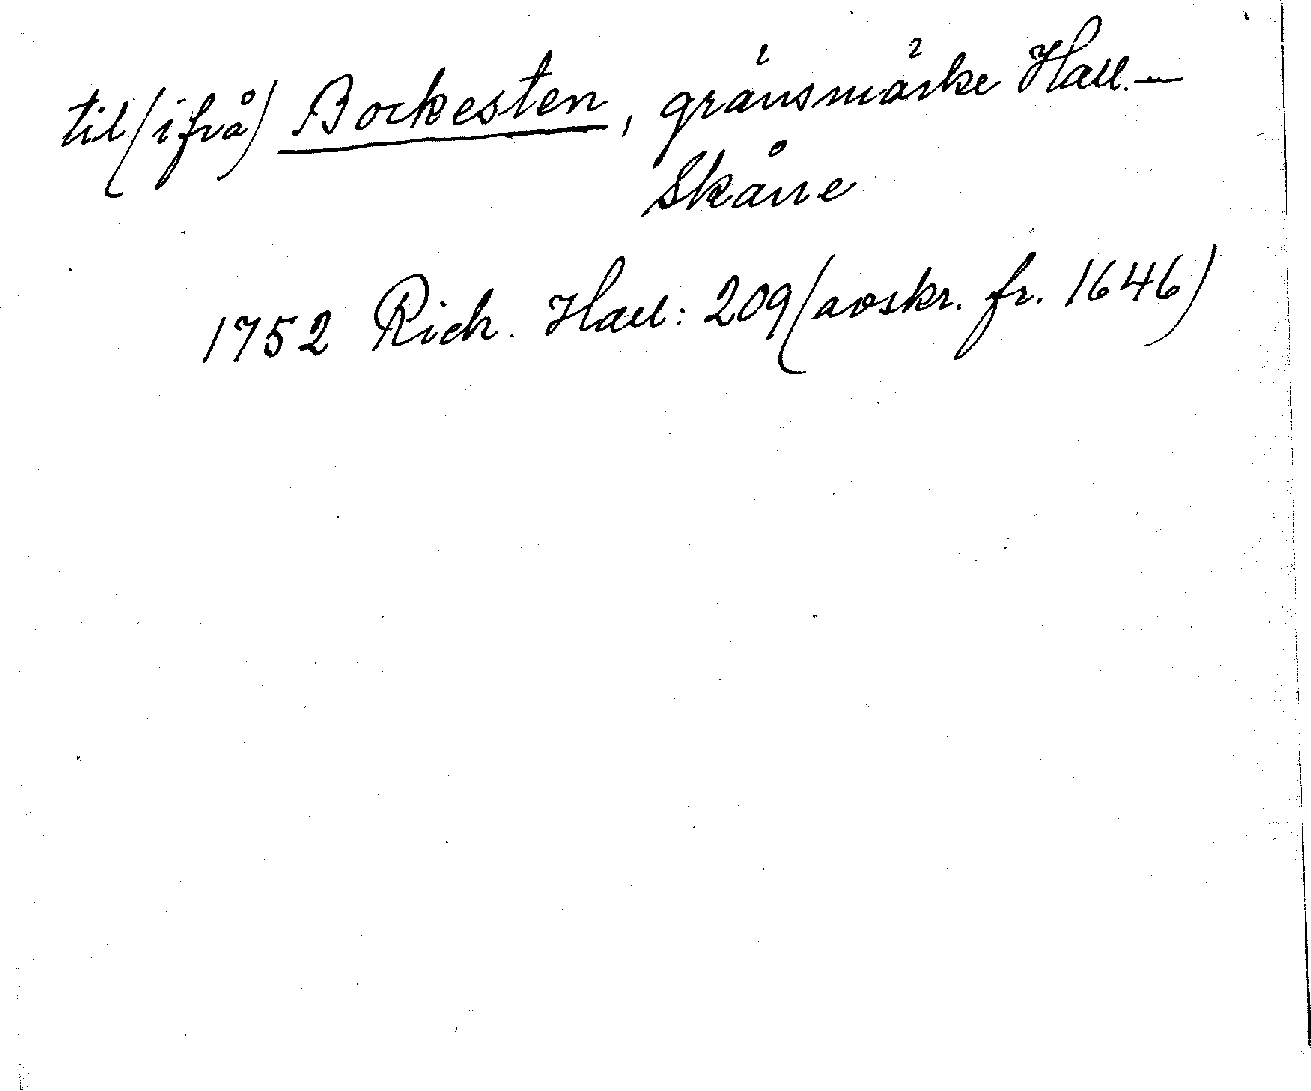 til (ifrå) Bockesten, gränsmärke Hall.—
Skåne
1752 Rich. Hall: 209 (avskr. fr. 1646)